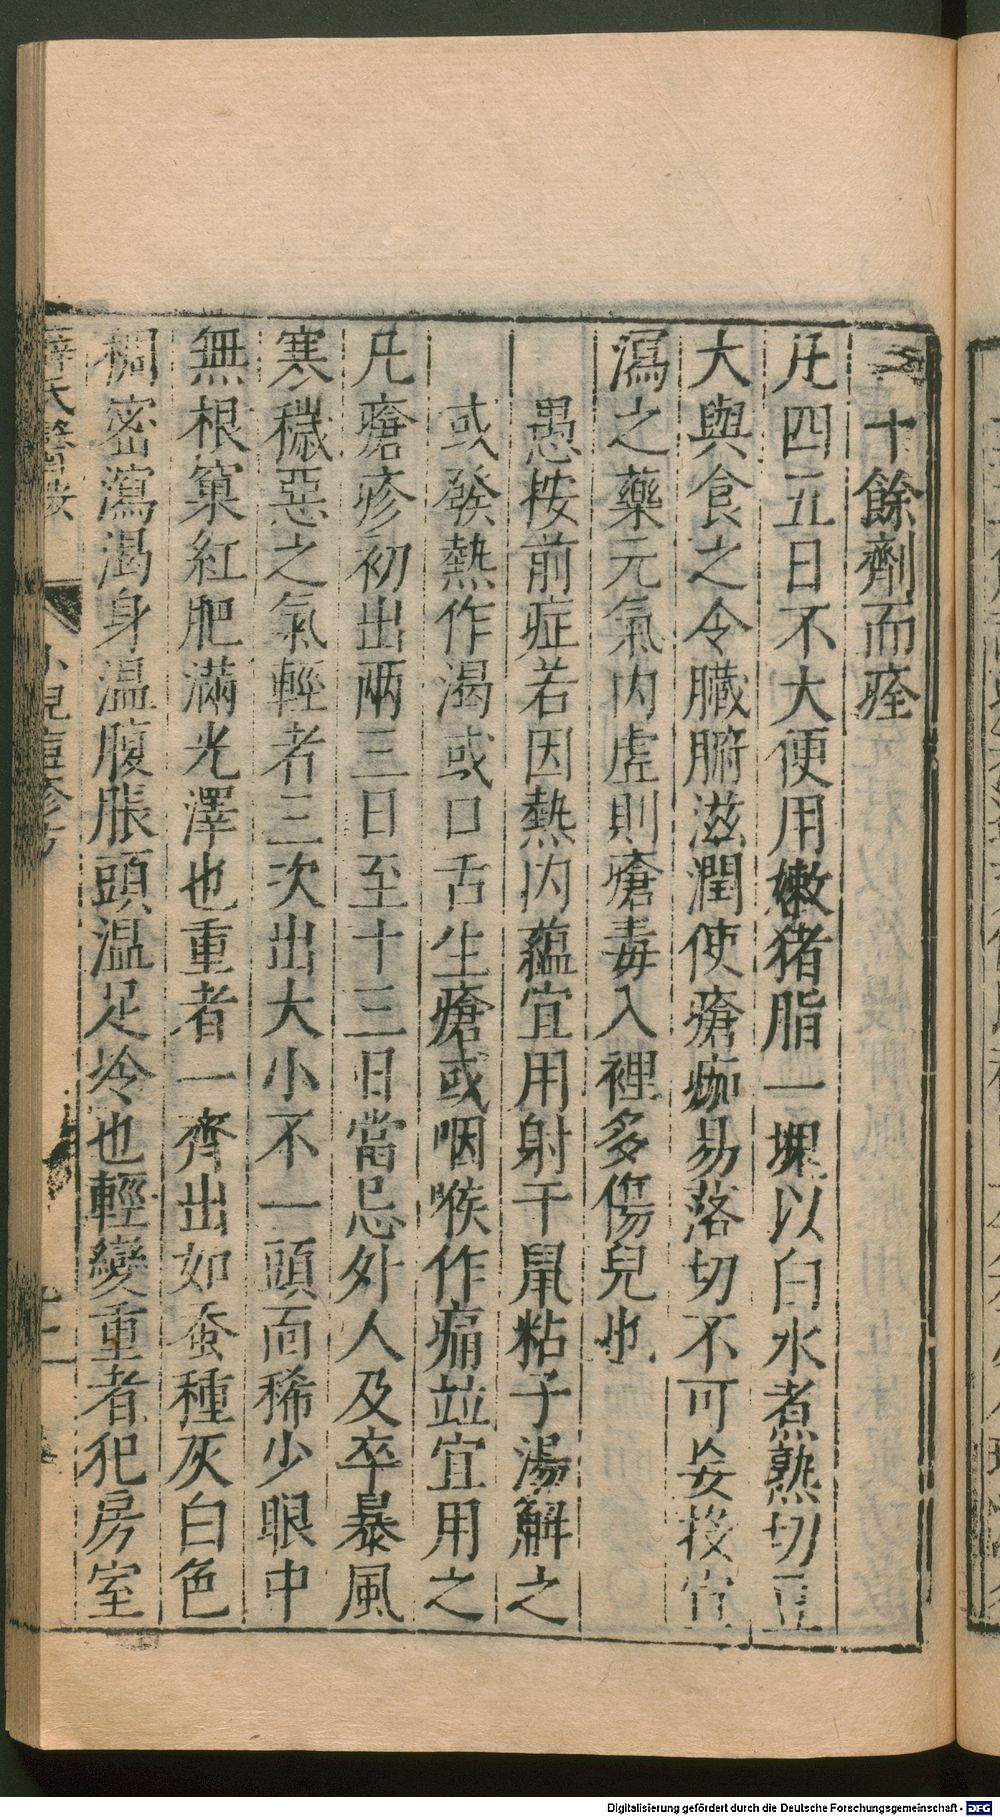 二十餘劑而痊
凡四五日不大便用嫩猪脂一塊以白水煮熟切豆
大與食之令臟腑滋潤使瘡痂易落切不可妄投宣
瀉之藥元氣内虛則瘡毒入裡多傷兒也
愚按前症若因熱内蘊宜用射干鼠粘子湯解之
或發熱作渴或口舌生瘡或咽喉作痛並宜用之
凡瘡疹初出兩三日至十三日當忌外人及卒暴風
寒穢惡之氣輕者三次出大小不一頭面稀少眼中
無根窠紅肥滿光澤也重者一齊出如蚕種灰白色
稠密瀉渴身温腹脹頭温足冷也輕變重者犯房室
薛氏醫按
小兒痘疹方
Digitalisierung gefördert durch die Deutsche Forschungsgemeinschaft - DFG